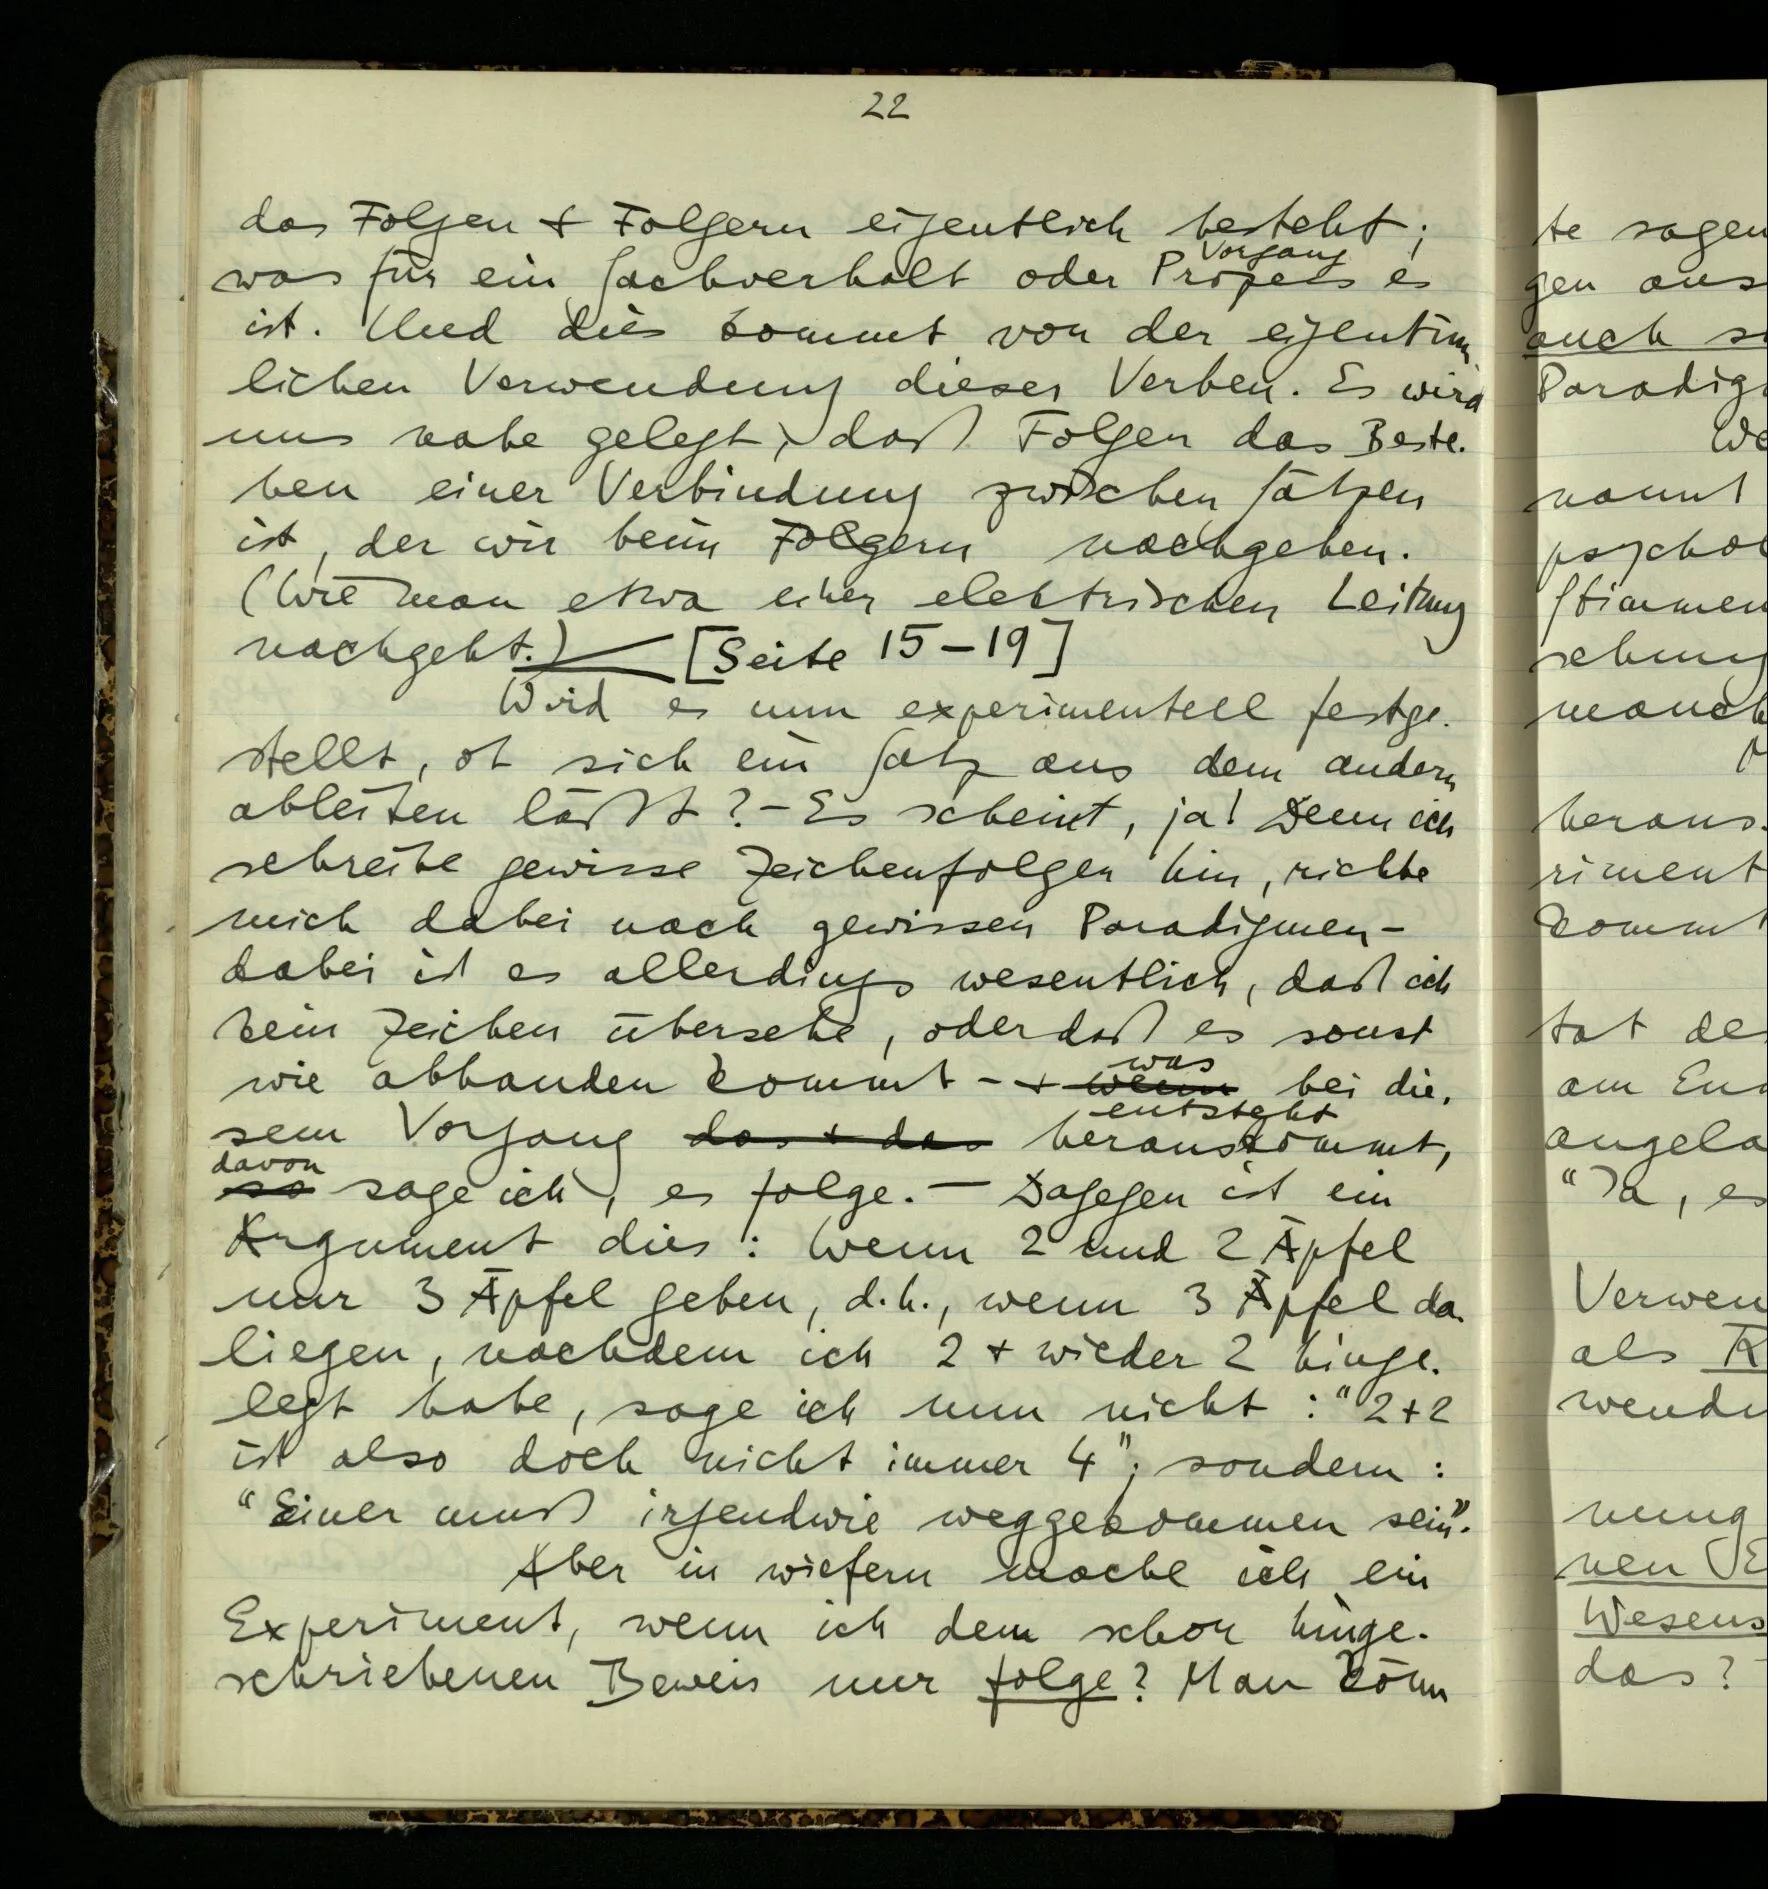 22
das Folgen + Folgern eigentlich besteht;
Vorgang
was für ein Sachverhalt oder Prozess es
ist. Und dies kommt von der eigentüm
lichen Verwendung dieser Verben. Es wird
uns nahe gelegt, daß Folgen das Beste-
hen einer Verbindung zwischen Sätzen
ist, der wir beim Folgern nachgehen.
(Wie man etwa einer elektrischen Leitung
nachgeht.) [Seite 15–19]
Wird es nun experimentell festge-
stellt, ob sich ein Satz aus dem andern
ableiten läßt? – Es scheint, ja! Denn ich
schreibe gewisse Zeichenfolgen hin, richte
mich dabei nach gewissen Paradigmen –
dabei ist es allerdings wesentlich, daß ich
kein Zeichen übersehe, oder daß es sonst
was
wie abhanden kommt – + wenn bei die-
entsteht
sem Vorgang das + das herauskommt,
davon
so sage ich, es folge. – Dagegen ist ein
Argument dies: Wenn 2 und 2 Äpfel
nur 3 Äpfel geben, d.h., wenn 3 Äpfel da-
liegen, nachdem ich 2 + wieder 2 hinge-
legt habe, sage ich nun nicht: "2+2
ist also doch nicht immer 4"; sondern:
"Einer muß irgendwie weggekommen sein".
Aber in wiefern mache ich ein
Experiment, wenn ich dem schon hinge-
schriebenen Beweis nur folge? Man könn
te sagen
gen aus
auch
Paradig
We
nannt
psychol
stimmen
sehung
manch
heraus.
riment
kommt
tat de
am En
angela
"Ja, es
Verwen
als
wend
nung
nen
Wesens
das?